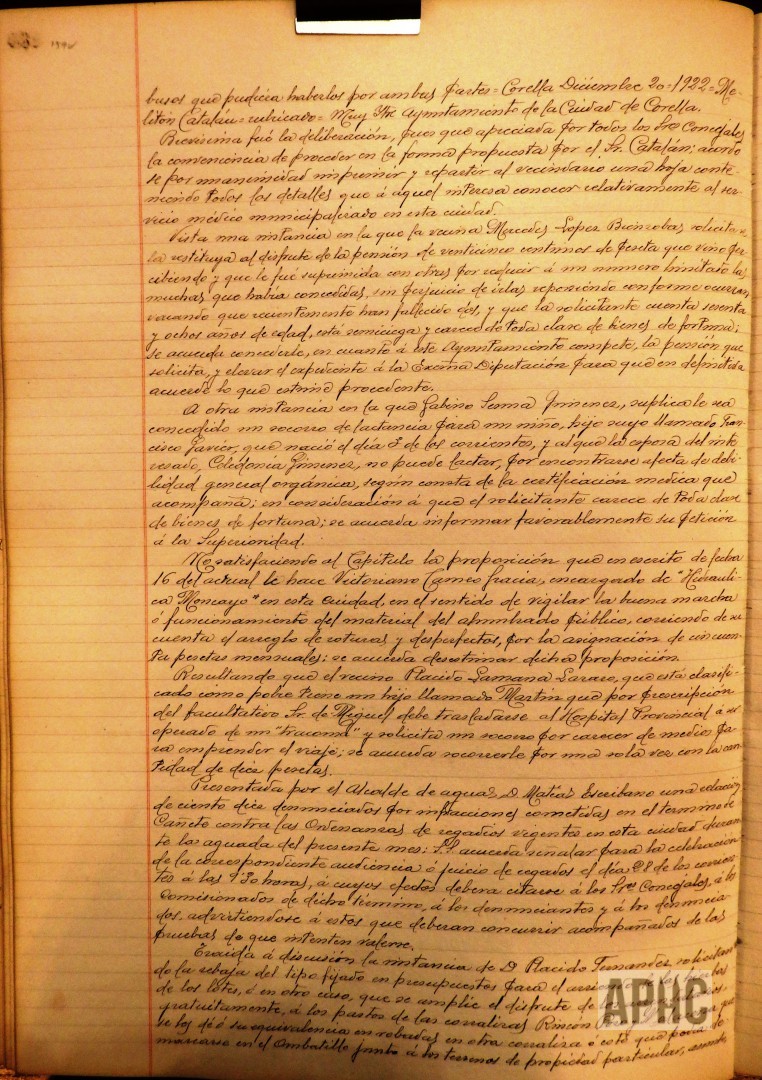 busos que pudiera haberlos por ambas partes = Corella Diciembre 20 = 1922 = Me-
litón Catalán = rubricado = Muy Iltre Ayuntamiento de la Ciudad de Corella.
Brevísima fué la deliberación, pues que apreciada por todos los Sres Concejales
la conveniencia de proceder en la forma propuesta por el Sr. Catalán; acordo-
se por unanimidad imprimir y repartir al vecindario una hoja conte-
niendo todos los detalles que á aquel interesa conocer relativamente al ser-
vicio médico municipalizado en esta ciudad.
Vista una instancia en la que la vecina Mercedes Lopez solicita se
la restituya al disfrute de la pensión de venticinco centimos de peseta que vino per-
cibiendo y que le fué suprimida con otras por reducir á un numero limitado las
muchas que había concedidas, sin perjuicio de irlas reponiendo conforme ocurran
vacando que recientemente han fallecido dos, y que la solicitante cuenta sesenta
y ochos años de edad, está semiciega y carece de toda clase de bienes de fortuna;
se acuerda concederle, en cuanto á este Ayuntamiento compete, la pensión que
solicita, y elevar el expediente á la Excma Diputación para que en definitiva
acuerde lo que estime procedente.
A otra instancia en la que Gabino Sesma Gimenez, suplica le sea
concedido un socorro de lactancia para un niño, hijo suyo llamado Fran-
cisco Javier, que nació el día 3 de los corrientes, y al que la esposa del inte-
resado, Celedonia Gimenez, no puede lactar, por encontrarse afecta de debi-
lidad general orgánica, según consta de la certificación medica que
acompaña; en consideración á que el solicitante carece de toda clase
de bienes de fortuna; se acuerda informar favorablemente su petición
á la Superioridad.
No satisfaciendo al Capítulo la proposición que en escrito de fecha
16 del actual le hace Victoriano Gracia, encargado de "Hidrauli-
ca Moncayo" en esta Ciudad, en el sentido de vigilar la buena marcha
ó funcionamiento del material del alumbrado público, corriendo de su
cuenta el arreglo de roturas y desperfectos, por la asignación de cincuen-
ta pesetas mensuales; se acuerda desestimar dicha proposición.
Resultando que el vecino Placido Lamana Lazaro, que está clasifi-
cado como pobre tiene un hijo llamado Martin que por prescripción
del facultativo Sr. de Miguel debe trasladarse al Hospital Provincial á ser
operado de un "tracoma" y solicita un socorro por carecer de medios pa-
ra emprender el viaje; se acuerda socorrerle por una sola vez con la can-
tidad de diez pesetas.
Presentada por el Alcalde de aguas, D. Matías Escribano una relación
de ciento diez denunciados por infracciones cometidas en el termino de
Cañete contra las Ordenanzas de regadios vigentes en esta ciudad duran-
te la aguada del presente mes; S.S. acuerda señalar para la celebración
de la correspondiente audiencia ó juicio de regados el día 28 de los corrien-
tes á las 9'30 horas, á cuyos efectos debera citarse á los Sres Concejales, á los
Comisionados de dicho término, á los denunciantes y á los denuncia-
dos, advirtiendose á estos que deberan concurrir acompañados de las
pruebas de que intenten valerse.
Traida á discusión la instancia de D. Placido Fernandez solicitan-
do la rebaja del tipo fijado en presupuestos para el
de los lotes, ó en otro caso, que se amplie el disfrute de
gratuitamente, á los pastos de las corralizas Rincon
se los dé ó su equivalencia en robadas en otra corraliza ó esté que
marcarse en el Ombatillo junto á los terrenos de propiedad particular,
APHC